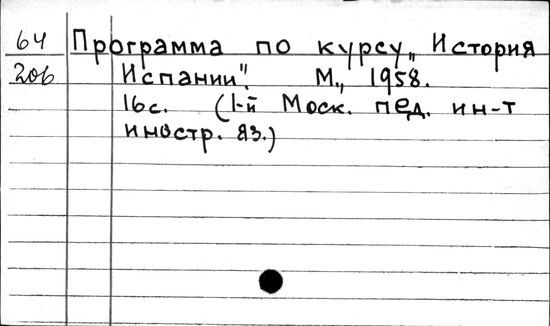 64 Программа по курсу „История
206 Испании". М., 1958.
16с. (1-й Моск. пед. ин-т
иностр. яз.)